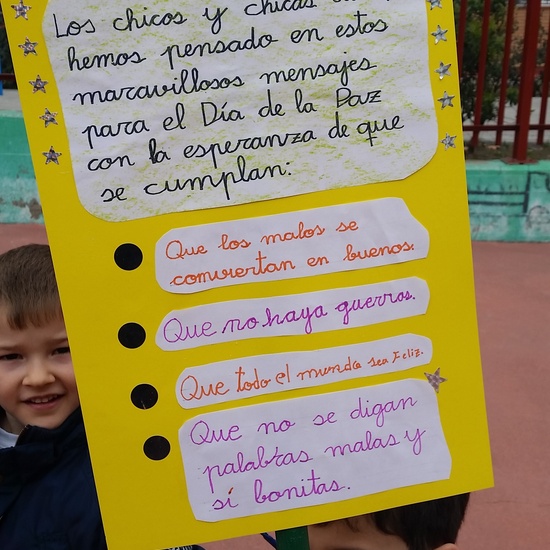 Los chicos y chicas
hemos pensado en estos
maravillosos mensajes
para el Día de la Paz
con la esperanza de que
se cumplan:
Que los malos se
conviertan en buenos.
Que no haya guerras.
Que todo el mundo sea Feliz.
Que no se digan
palabras malas y
sí bonitas.